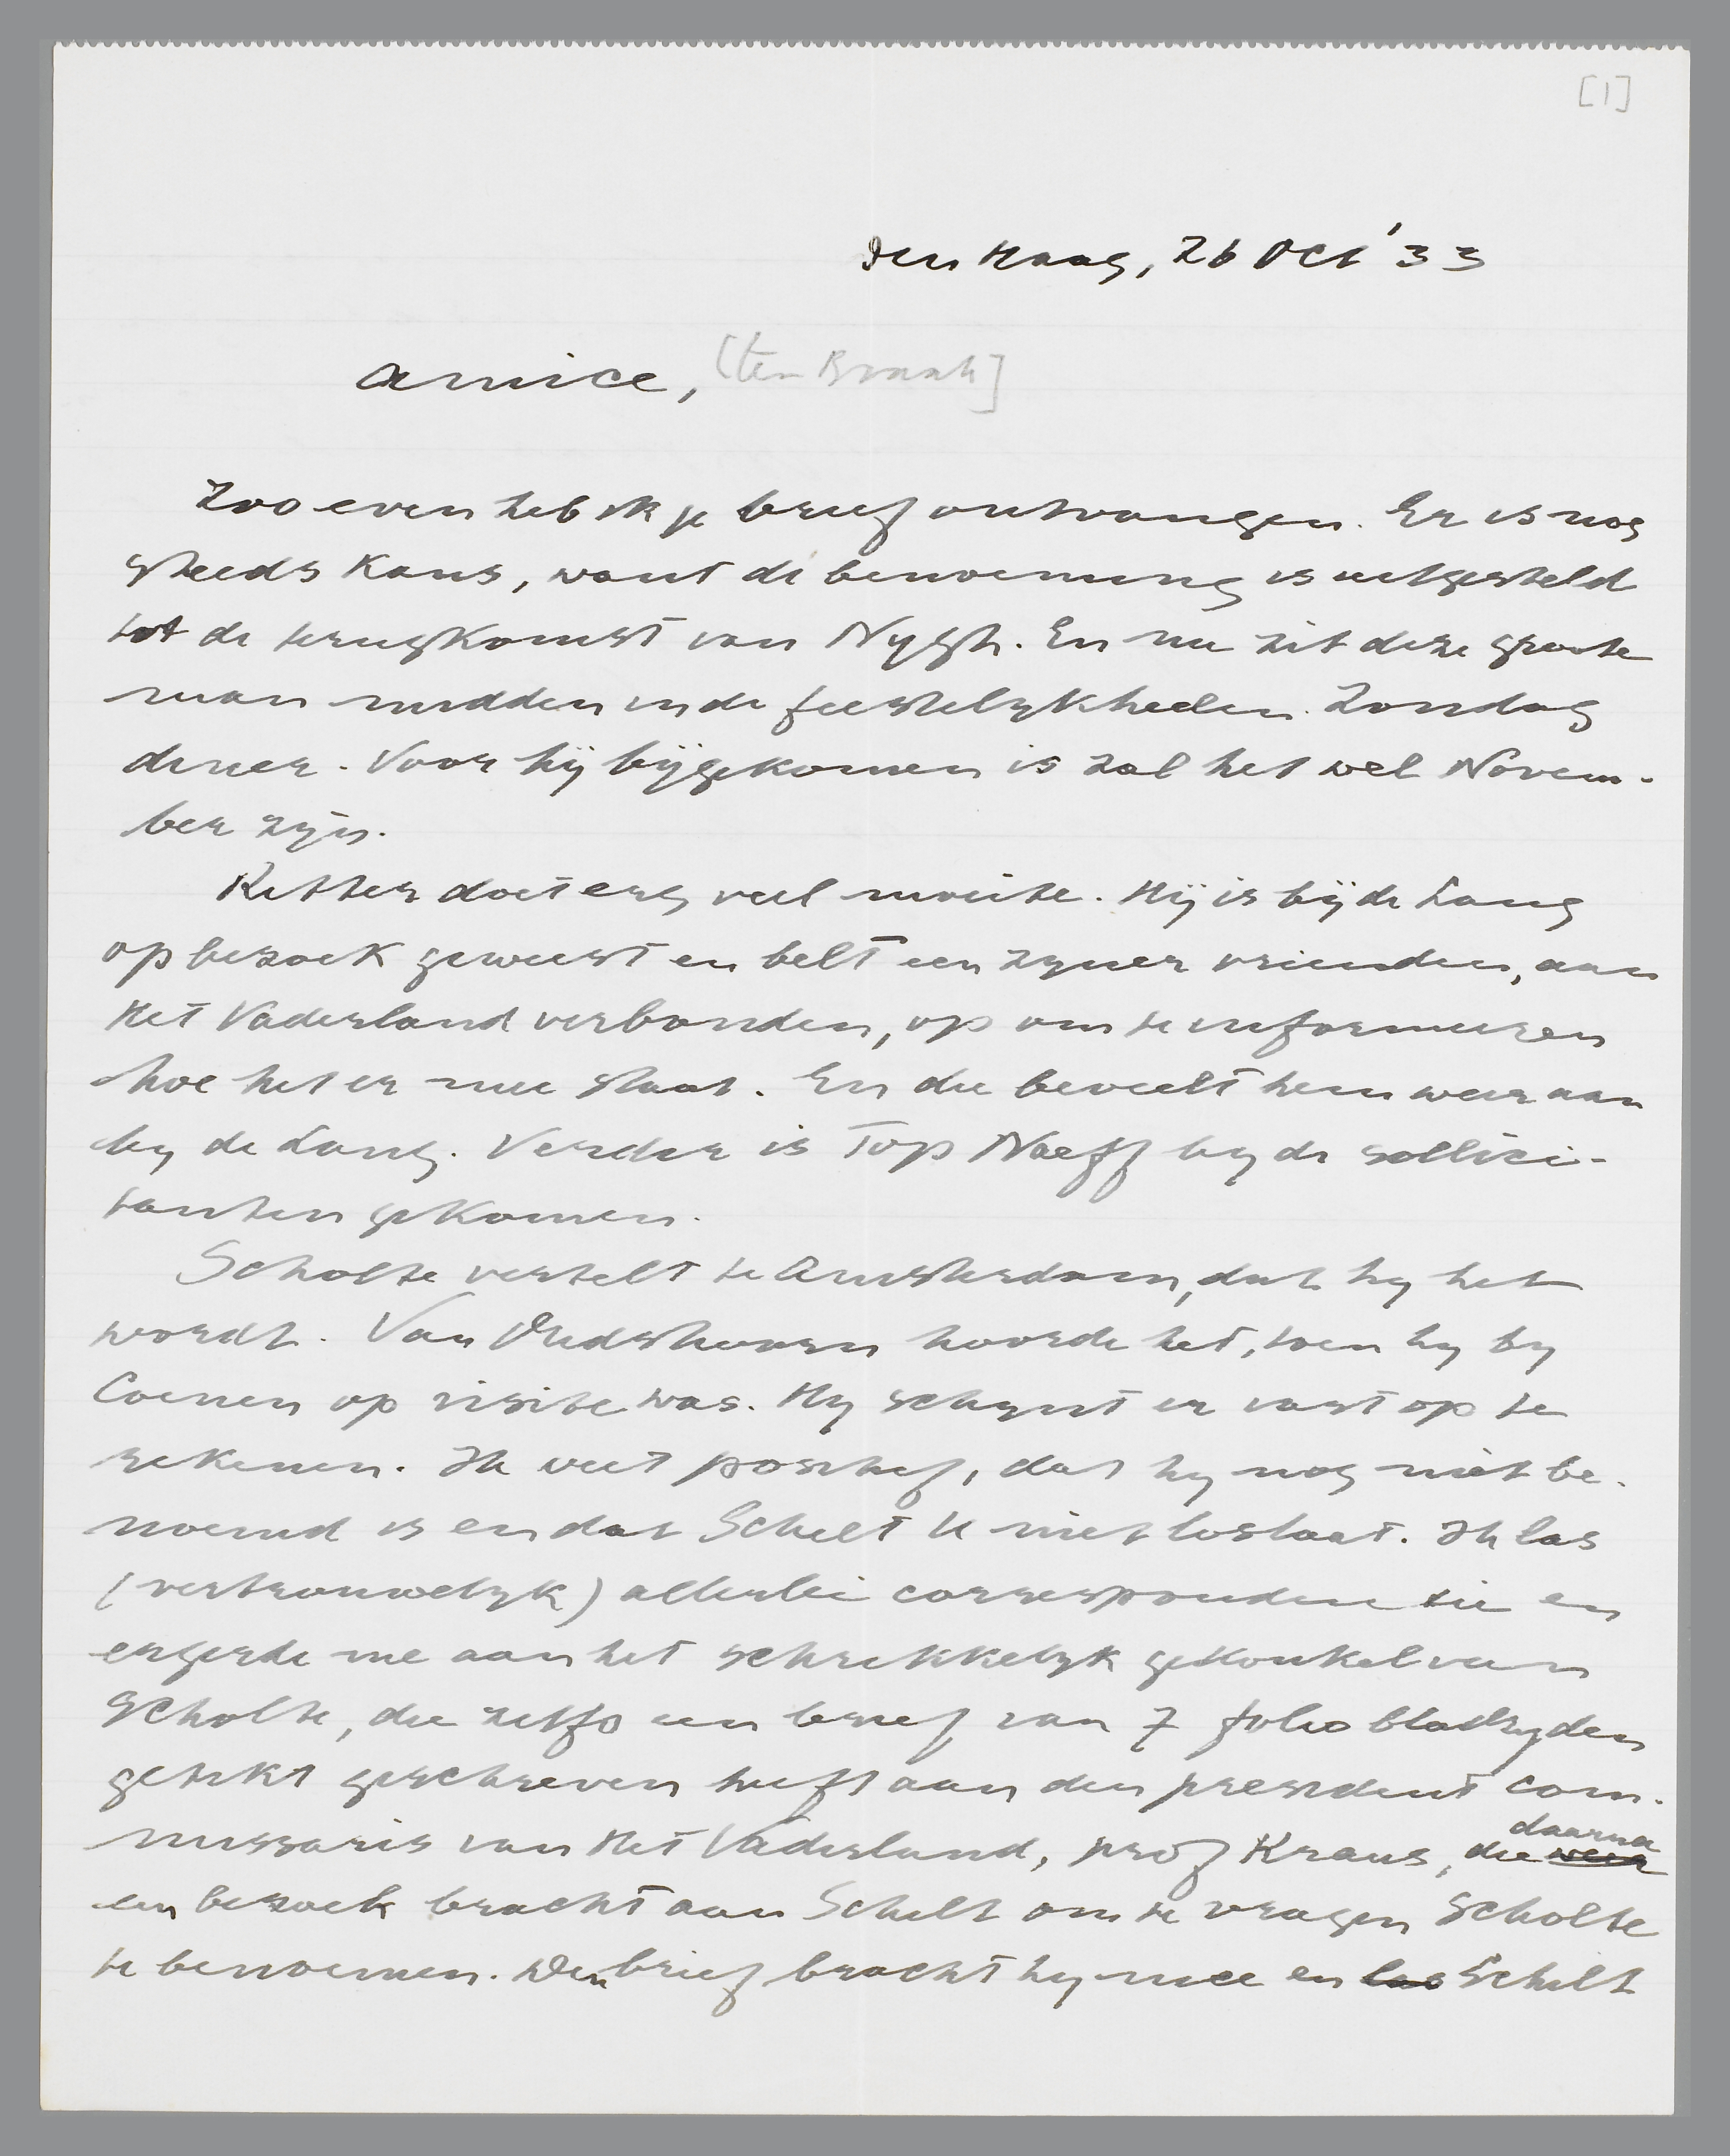 [1]
Den Haag, 26 Oct '33
Amice, [ter Braak]
Zoo even heb ik je brief ontvangen. Er is nog
steeds kans, want de benoeming is uitgesteld
tot de terugkomst van Nijgh. En nu zit deze groote
man midden in de feestelijkheden. Zondag
diner. Voor hij bijgekomen is zal het wel Novem-
ber zijn.
Ritter doet erg veel moeite. Hij is bij de Lang
op bezoek geweest en belt een zijner vrienden, aan
Het Vaderland verbonden, op om te informeeren
hoe het er mee staat. En die beveelt hem weer aan
bij de Lang. Verder is Top Naeff bij de sollici-
tanten gekomen.
Scholte vertelt te Amsterdam, dat hij het
wordt. Van Oudshoorn hoorde het, toen hij bij
Coenen op visite was. Hij schijnt er vast op te
rekenen. Ik weet positief, dat hij nog niet be-
noemd is en dat Schilt U niet loslaat. Ik las
(vertrouwelijk) allerlei correspondentie en
ergerde me aan het schrikkelijk gekonkel van
Scholte, die zelfs een brief van 7 folio bladzijden
getikt geschreven heeft aan den president com-
missaris van Het Vaderland, prof Kraus, die weer daarna
een bezoek bracht aan Schilt om te vragen Scholte
te benoemen. Den brief bracht hij mee en las Schilt